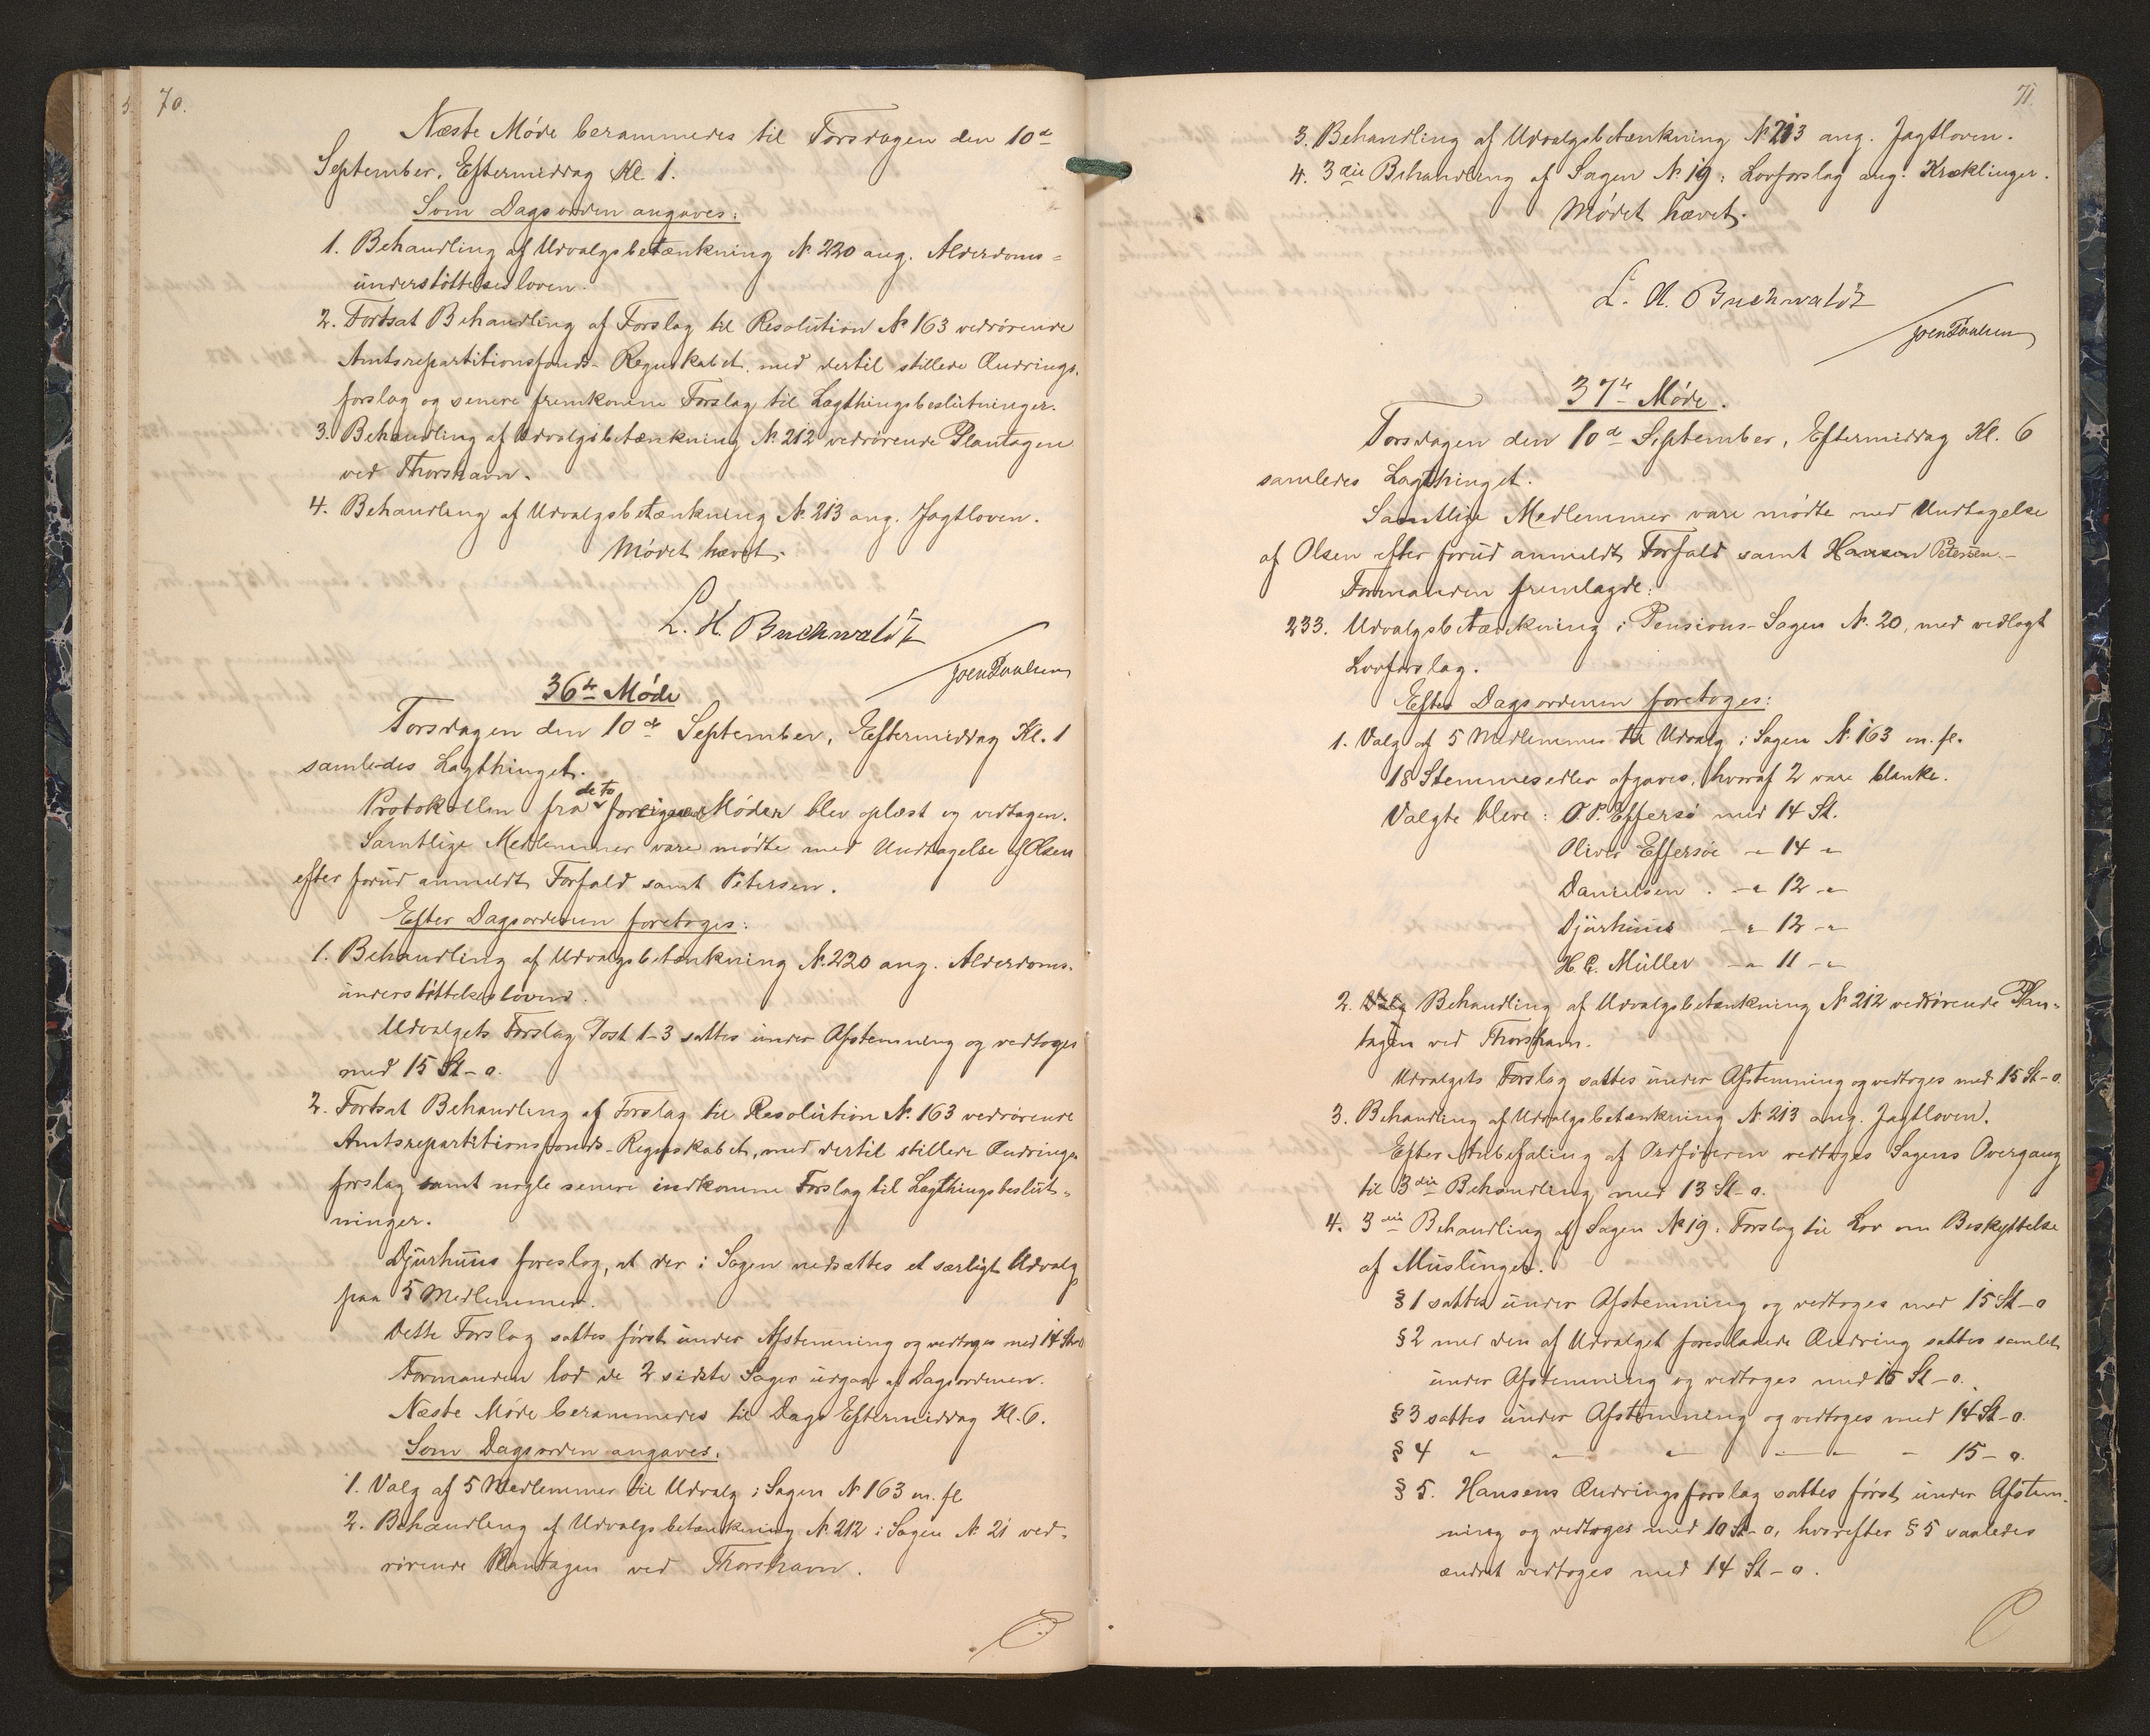 70.
Næste Møde berammedes til Torsdagen den 10de
September, Eftermiddag Kl. 1.
Som Dagsorden angaves:
1. Behandling af Udvalgsbetænkning № 220 ang. Alderdoms-
understøttelsesloven.
2. Fortsat Behandling af Forslag til Resolution № 163 vedrørende
Amtsrepartitionsfonds-Regnskabet, med dertil stillede Ændrings-
forslag og senere fremkomne Forslag til Lagthingsbeslutninger.
3. Behandling af Udvalgsbetænkning № 212 vedrørende Plantagen
ved Thorshavn.
4. Behandling af Udvalgsbetænkning № 213 ang. Jagtloven.
Mødet hævet.
L. H. Buchwaldt
Joen Poulsen
36te Møde
Torsdagen den 10de September, Eftermiddag Kl. 1
samledes Lagthinget.
Protokollen fra de to forrige Møder blev oplæst og vedtagen.
Samtlige Medlemmer vare mødte med Undtagelse af Olsen
efter forud anmeldt Forfald samt Petersen.
Efter Dagsordenen foretoges:
1. Behandling af Udvalgsbetænkning № 220 ang. Alderdoms-
understøttelsesloven.
Udvalgets Forslag Post 1-3 sattes under Afstemning og vedtoges
med 15 St-0.
2. Fortsat Behandling af Forslag til Resolution № 163 vedrørende
Amtsrepartitionsfonds-Regnskabet, med dertil stillede Ændrings-
forslag samt nogle senere indkomne Forslag til Lagthingsbeslut-
ninger.
Djurhuus foreslog, at der i Sagen nedsattes et særligt Udvalg
paa 5 Medlemmer.
Dette Forslag sattes først under Afstemning og vedtoges med 14 St-0
Formanden lod de 2 sidste Sager udgaa af Dagsordenen.
Næste Møde berammedes til Dags Eftermiddag Kl. 6.
Som Dagsorden angaves:
1. Valg af 5 Medlemmer til Udvalg i Sagen № 163 m. fl
2. Behandling af Udvalgsbetænkning № 212 i Sagen № 21 ved-
rørende Plantagen ved Thorshavn.
71.
3. Behandling af Udvalgsbetænkning № 213 ang. Jagtloven.
4. 3die Behandling af Sagen № 19: Lovforslag ang. Kræklinger.
Mødet hævet.
L. H. Buchwaldt
Joen Poulsen
37te Møde.
Torsdagen den 10de September, Eftermiddag Kl. 6
samledes Lagthinget.
Samtlige Medlemmer vare mødte med Undtagelse
af Olsen efter forud anmeldt Forfald samt Hansen Petersen.
Formanden fremlagde:
233. Udvalgsbetænkning i Pensions-Sagen № 20, med vedlagt
Lovforslag.
Efter Dagsordenen foretoges:
1. Valg af 5 Medlemmer til Udvalg i Sagen № 163 m. fl.
18 Stemmesedler afgaves, hvoraf 2 vare blanke.
Valgte bleve: O. P. Effersø med 14 St.
Oliver Effersøe -"- 14 -"-
Danielsen -"- 12 -"-
Djurhuus -"- 12 -"-
H. C. Müller -"- 11 -"-
2. Valg Behandling af Udvalgsbetænkning № 212 vedrørende Plan-
tagen ved Thorshavn.
Udvalgets Forslag sattes under Afstemning og vedtoges med 15 St-0.
3. Behandling af Udvalgsbetænkning № 213 ang. Jagtloven.
Efter Anbefaling af Ordføreren vedtoges Sagens Overgang
til 3die Behandling med 13 St-0.
4. 3die Behandling af Sagen № 19: Forslag til Lov om Beskyttelse
af Muslinger.
§ 1 sattes under Afstemning og vedtoges med 15 St-0
§ 2 med den af Udvalget foreslaaede Ændring sattes samlet
under Afstemning og vedtoges med 15 St-0.
§ 3 sattes under Afstemning og vedtoges med 14 St-0.
§ 4 " " " " " 15-0.
§ 5. Hansens Ændringsforslag sattes først under Afstem-
ning og vedtoges med 10 St-0, hvorefter § 5 saaledes
ændret vedtoges med 14 St-0.